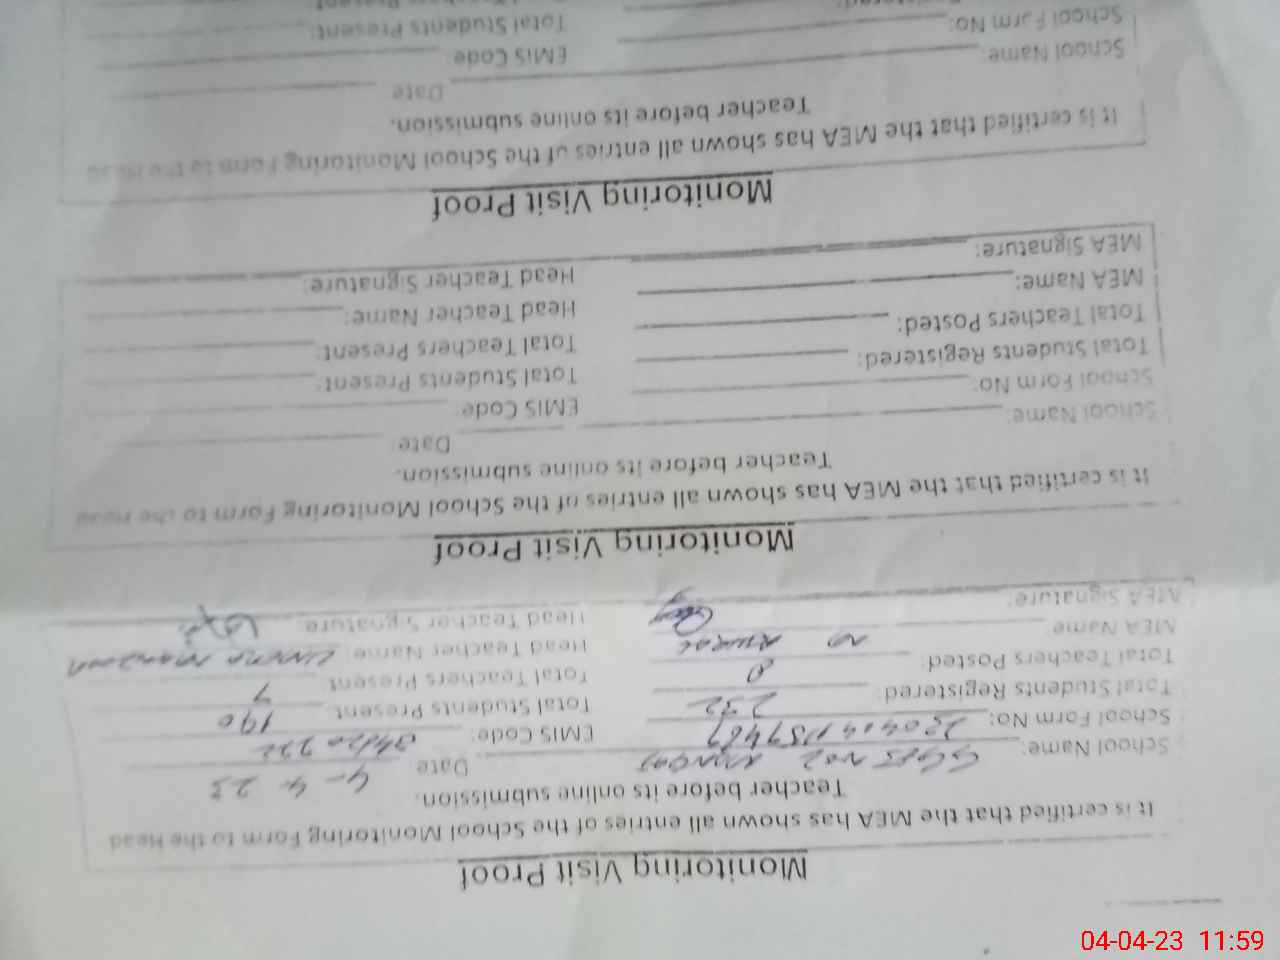 Monitoring Visit Proof
It is certified that the MEA has shown all entries of the School Monitoring Form to the Head
Teacher before its online submission.
School Name: GGPS No2 Date 4-4-23
School Form No: EMIS Code:
Total Students Registered: 232 Total Students Present: 190
Total Teachers Posted: 8 Total Teachers Present 7
MEA Name: M Head Teacher Name:
MEA Signature: Head Teacher Signature:
Monitoring Visit Proof
It is certified that the MEA has shown all entries of the School Monitoring Form to the Head
Teacher before its online submission.
School Name: Date:
School Form No: EMIS Code:
Total Students Registered: Total Students Present:
Total Teachers Posted: Total Teachers Present:
MEA Name: Head Teacher Name:
MEA Signature: Head Teacher Signature:
Monitoring Visit Proof
It is certified that the MEA has shown all entries of the School Monitoring Form to the Head
Teacher before its online submission.
School Name: Date
School Form No: EMIS Code:
Total Students Present:
04-04-23 11:59